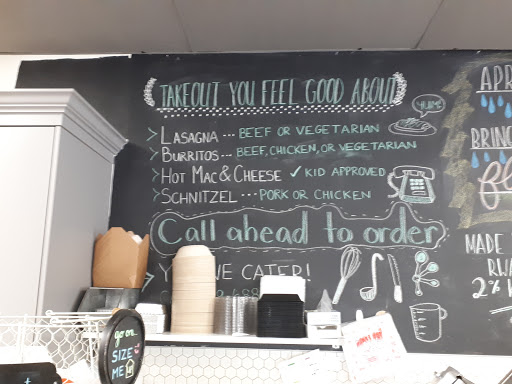 TAKEOUT YOU FEEL GOOD ABOUT
YUM!
> LASAGNA ... BEEF OR VEGETARIAN
> BURRITOS ... BEEF, CHICKEN, OR VEGETARIAN
> HOT MAC & CHEESE ✓ KID APPROVED
> SCHNITZEL ... PORK OR CHICKEN
Call ahead to order
WE CATER!
APR
BRING
MADE
2%
go on...
SIZE
ME